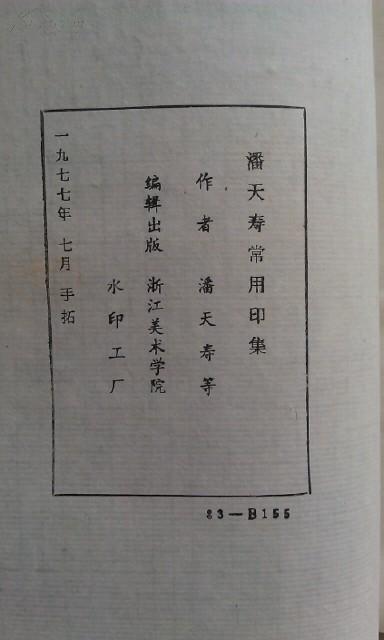 潘天寿常用印集
作者 潘天寿等
编辑出版 浙江美术学院
水印工厂
一九七七年 七月 手拓
83-B155